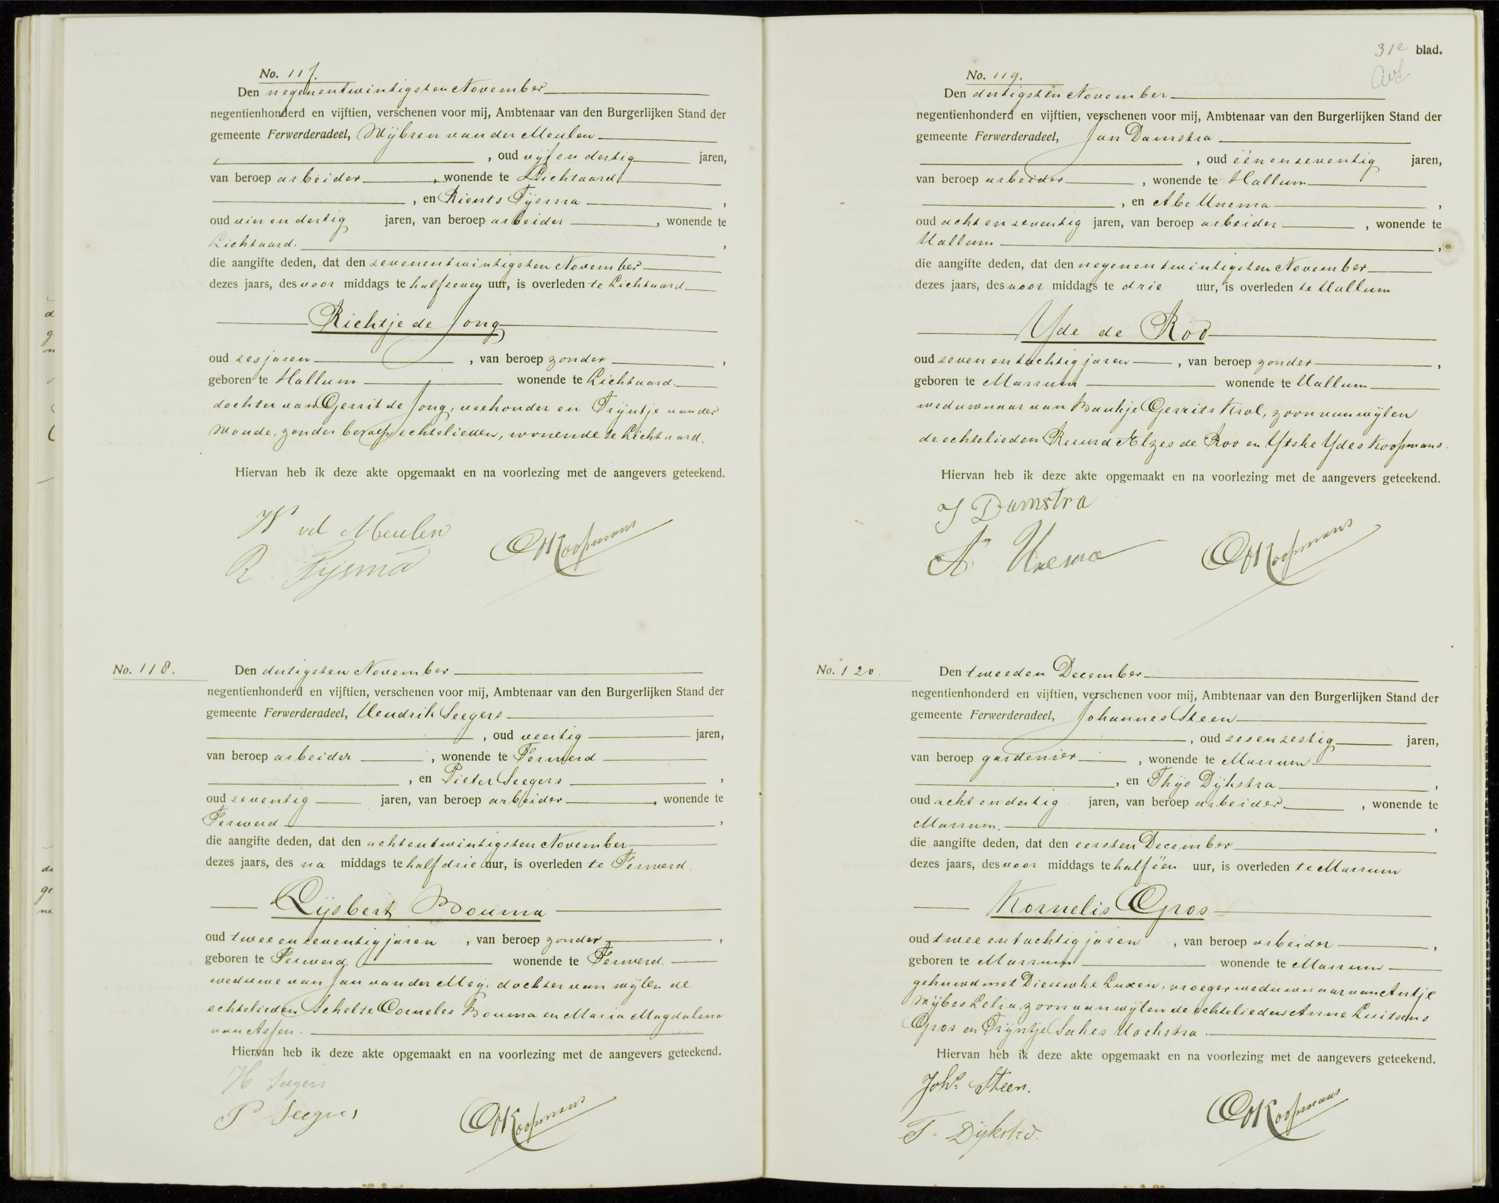 No. 117.
Den negenentwintigsten November
negentienhonderd en vijftien, verschenen voor mij, Ambtenaar van den Burgerlijken Stand der
gemeente Ferwerderadeel, Wijbren van der Meulen
, oud vijf en dertig jaren,
van beroep arbeider, wonende te Lichtaard
, en Rients Tijsma,
oud een en dertig jaren, van beroep arbeider, wonende te
Lichtaard.,
die aangifte deden, dat den zevenentwintigsten November
dezes jaars, des voor middags te half zeven uur, is overleden te Lichtaard
Richtje de Jong
oud zes jaren, van beroep zonder,
geboren te Hallum wonende te Lichtaard
dochter van Gerrit de Jong, veehouder en Trijntje van der
Woude, zonder beroep echtelieden, wonende te Lichtaard.
Hiervan heb ik deze akte opgemaakt en na voorlezing met de aangevers geteekend.
W vd Meulen
R Tijsma
Koopmans
No. 118.
Den dertigsten November
negentienhonderd en vijftien, verschenen voor mij, Ambtenaar van den Burgerlijken Stand der
gemeente Ferwerderadeel, Hendrik Seegers
, oud veertig jaren,
van beroep arbeider, wonende te Ferwerd
, en Pieter Seegers,
oud zeventig jaren, van beroep arbeider, wonende te
Ferwerd,
die aangifte deden, dat den achtentwintigsten November
dezes jaars, des na middags te half drie uur, is overleden te Ferwerd.
Lijsbert Bouma
oud twee en zeventig jaren, van beroep zonder,
geboren te Ferwerd wonende te Ferwerd
weduwe van Jan van der Meij, dochter van wijlen de
echtelieden Schelte Cornelis Bouma en Maria Magdalena
van Assen.
Hiervan heb ik deze akte opgemaakt en na voorlezing met de aangevers geteekend.
H Seegers
P Seegers
Koopmans
31e blad.
No. 119.
Den dertigsten November
negentienhonderd en vijftien, verschenen voor mij, Ambtenaar van den Burgerlijken Stand der
gemeente Ferwerderadeel, Jan Damstra
, oud één en zeventig jaren,
van beroep arbeider, wonende te Hallum
, en Abe Unema,
oud acht en zeventig jaren, van beroep arbeider, wonende te
Hallum,
die aangifte deden, dat den negenentwintigsten November
dezes jaars, des voor middags te drie uur, is overleden te Hallum
Yde de Roo
oud zeven en tachtig jaren, van beroep zonder,
geboren te Marrum wonende te Hallum
weduwnaar van Baukje Gerrits Krol, zoon van wijlen
de echtelieden Ruurd Elzes de Roo en Ytske Ydes Koopmans.
Hiervan heb ik deze akte opgemaakt en na voorlezing met de aangevers geteekend.
J Damstra
A. Unema
Koopmans
No. 120
Den tweeden December
negentienhonderd en vijftien, verschenen voor mij, Ambtenaar van den Burgerlijken Stand der
gemeente Ferwerderadeel, Johannes Steen
, oud zes en zestig jaren,
van beroep gardenier, wonende te Marrum
, en Thijs Dijkstra,
oud acht en dertig jaren, van beroep arbeider, wonende te
Marrum.,
die aangifte deden, dat den eersten December
dezes jaars, des voor middags te half één uur, is overleden te Marrum
Kornelis Gros
oud twee en tachtig jaren, van beroep arbeider,
geboren te Marrum wonende te Marrum
gehuwd met Dieuwke Luxen, vroeger weduwnaar van Antje
Wijbes Lelia, zoon van wijlen de echtelieden Anne Luitsens
Gros en Trijntje Sakes Hoekstra.
Hiervan heb ik deze akte opgemaakt en na voorlezing met de aangevers geteekend.
Johs Steen.
T. Dijkstra.
Koopmans